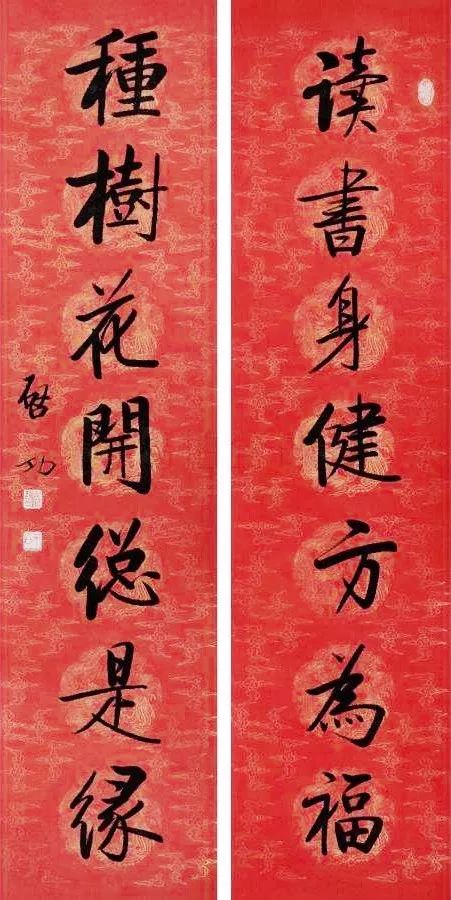 读书身健方为福
種樹花開總是缘
啓功